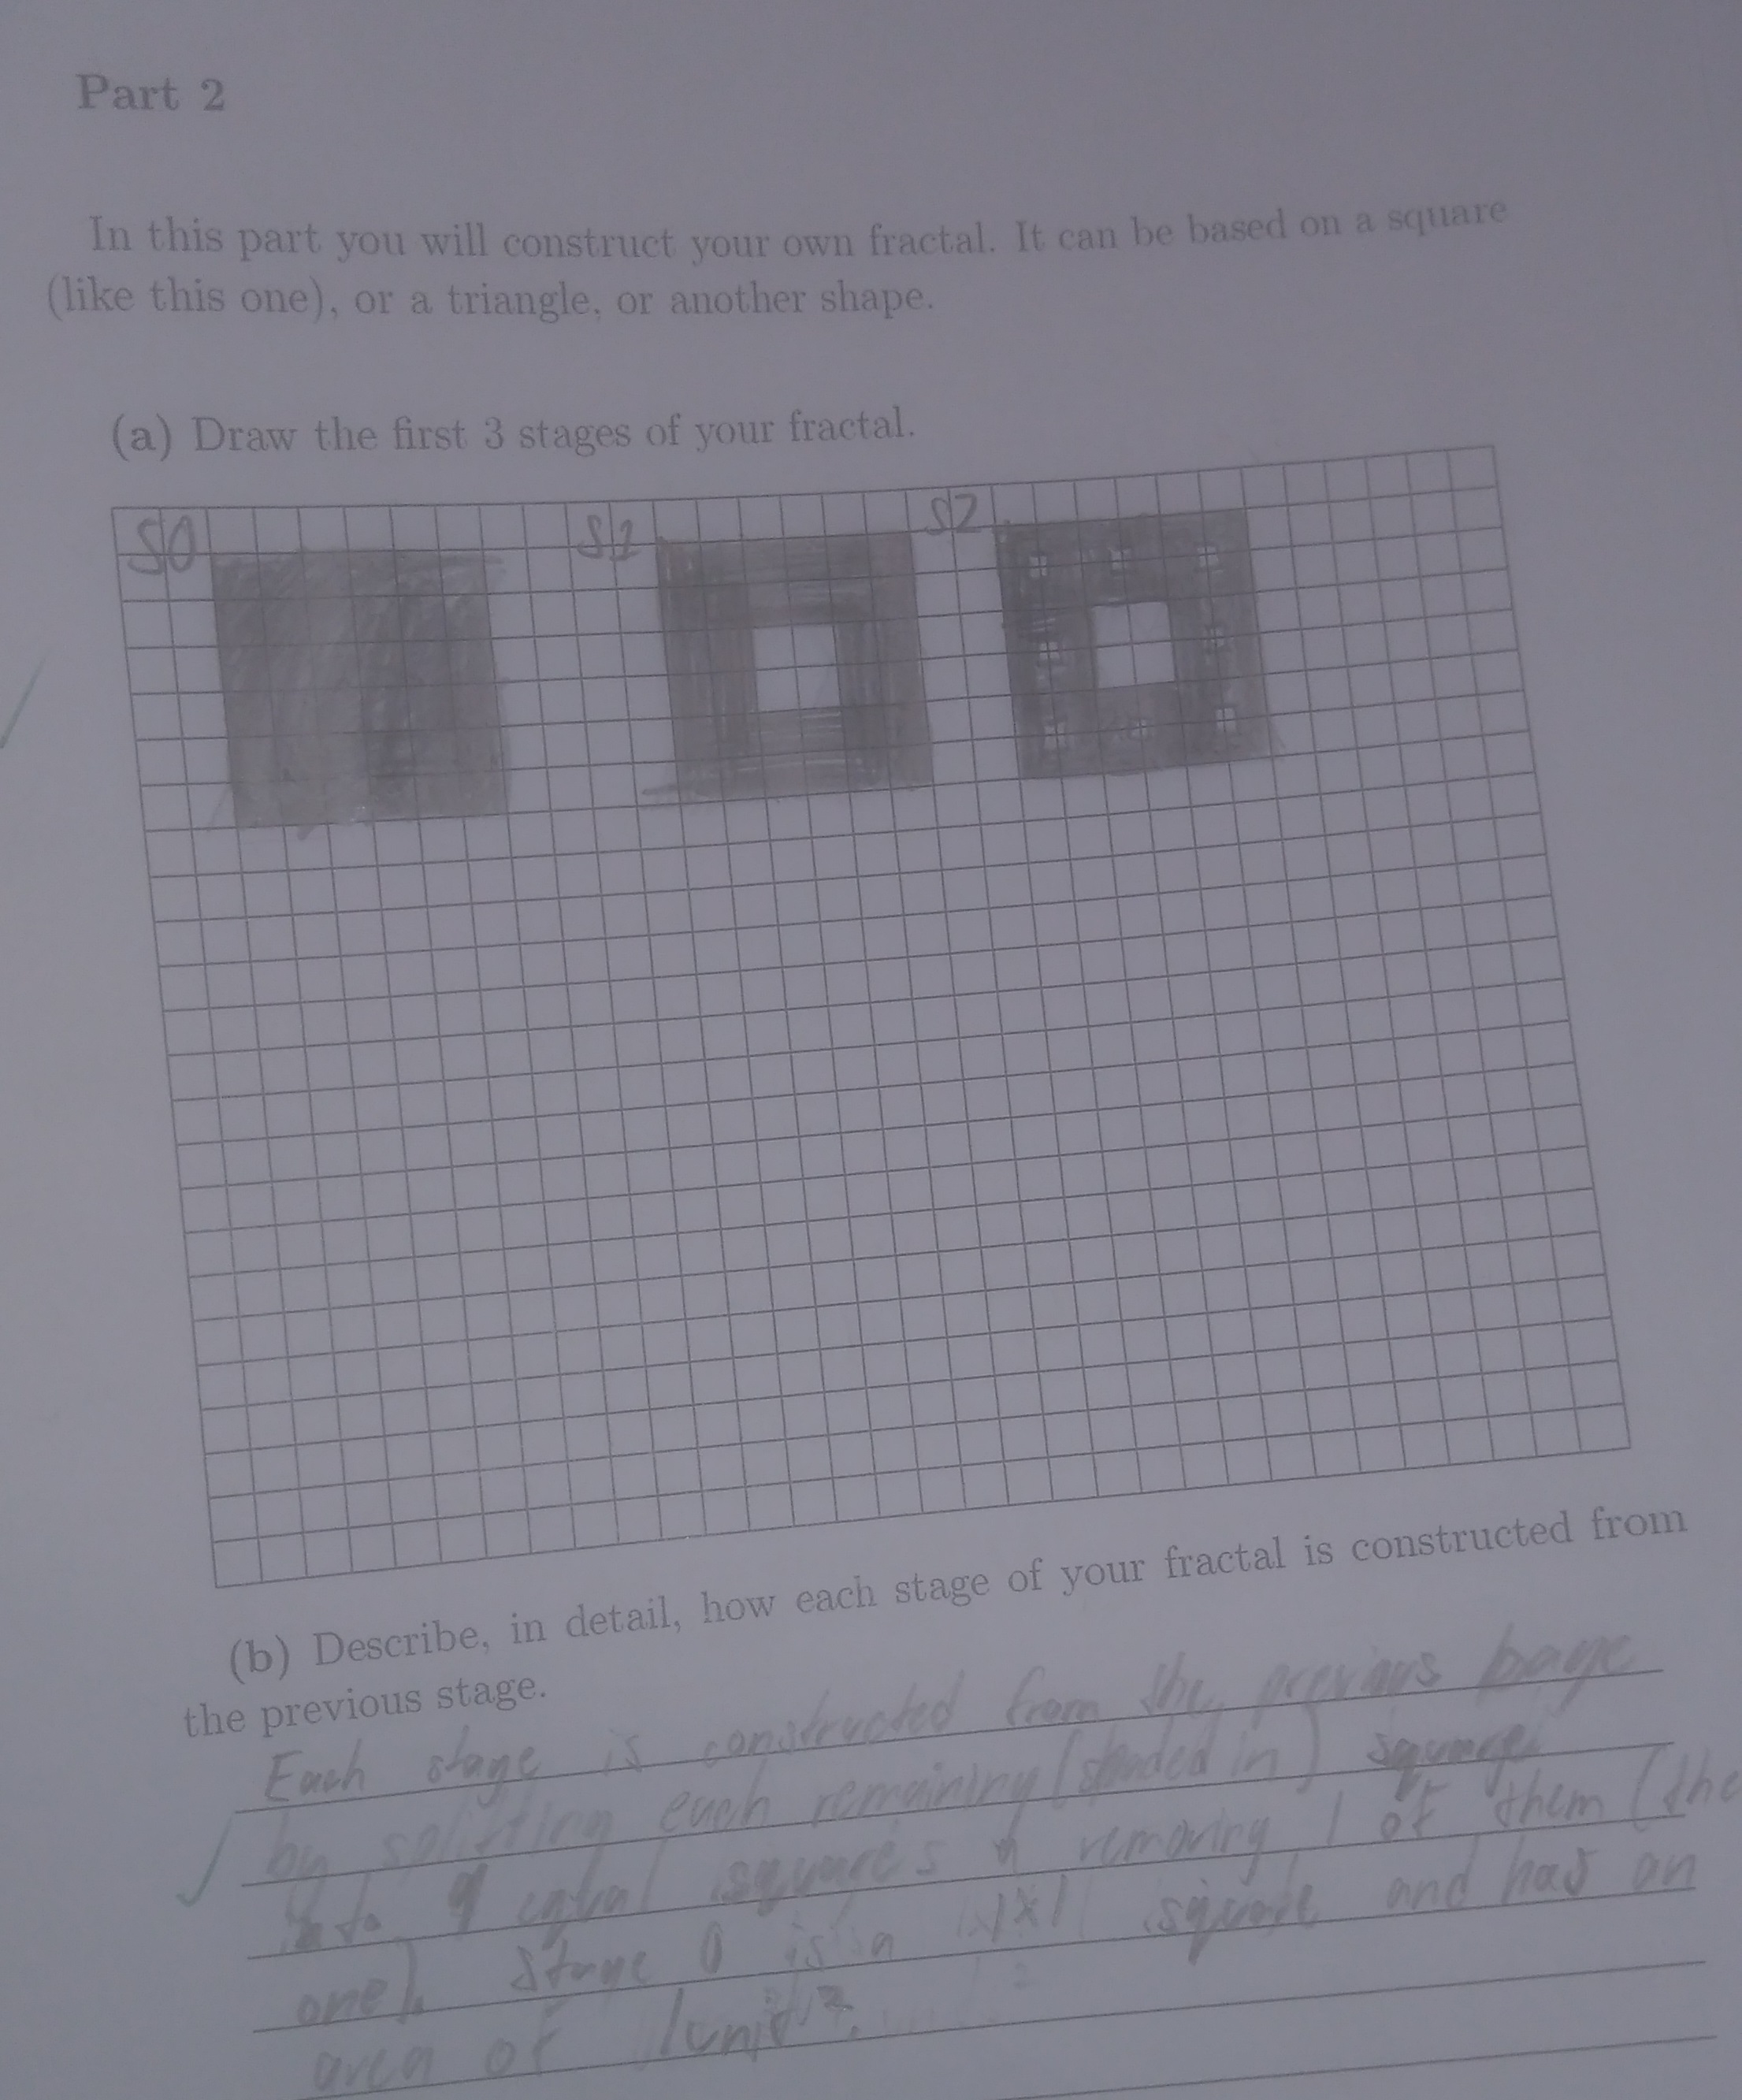 Part 2
In this part you will construct your own fractal. It can be based on a square
(like this one), or a triangle, or another shape.
(a) Draw the first 3 stages of your fractal.
S0 S1 S2
(b) Describe, in detail, how each stage of your fractal is constructed from
the previous stage.
Each stage is constructed from the previous
by splitting each remaining (shaded in) square
into 9 equal squares removing 1 of them (the
one). Stage 0 is a 1x1 square and has an
area of 1unit².